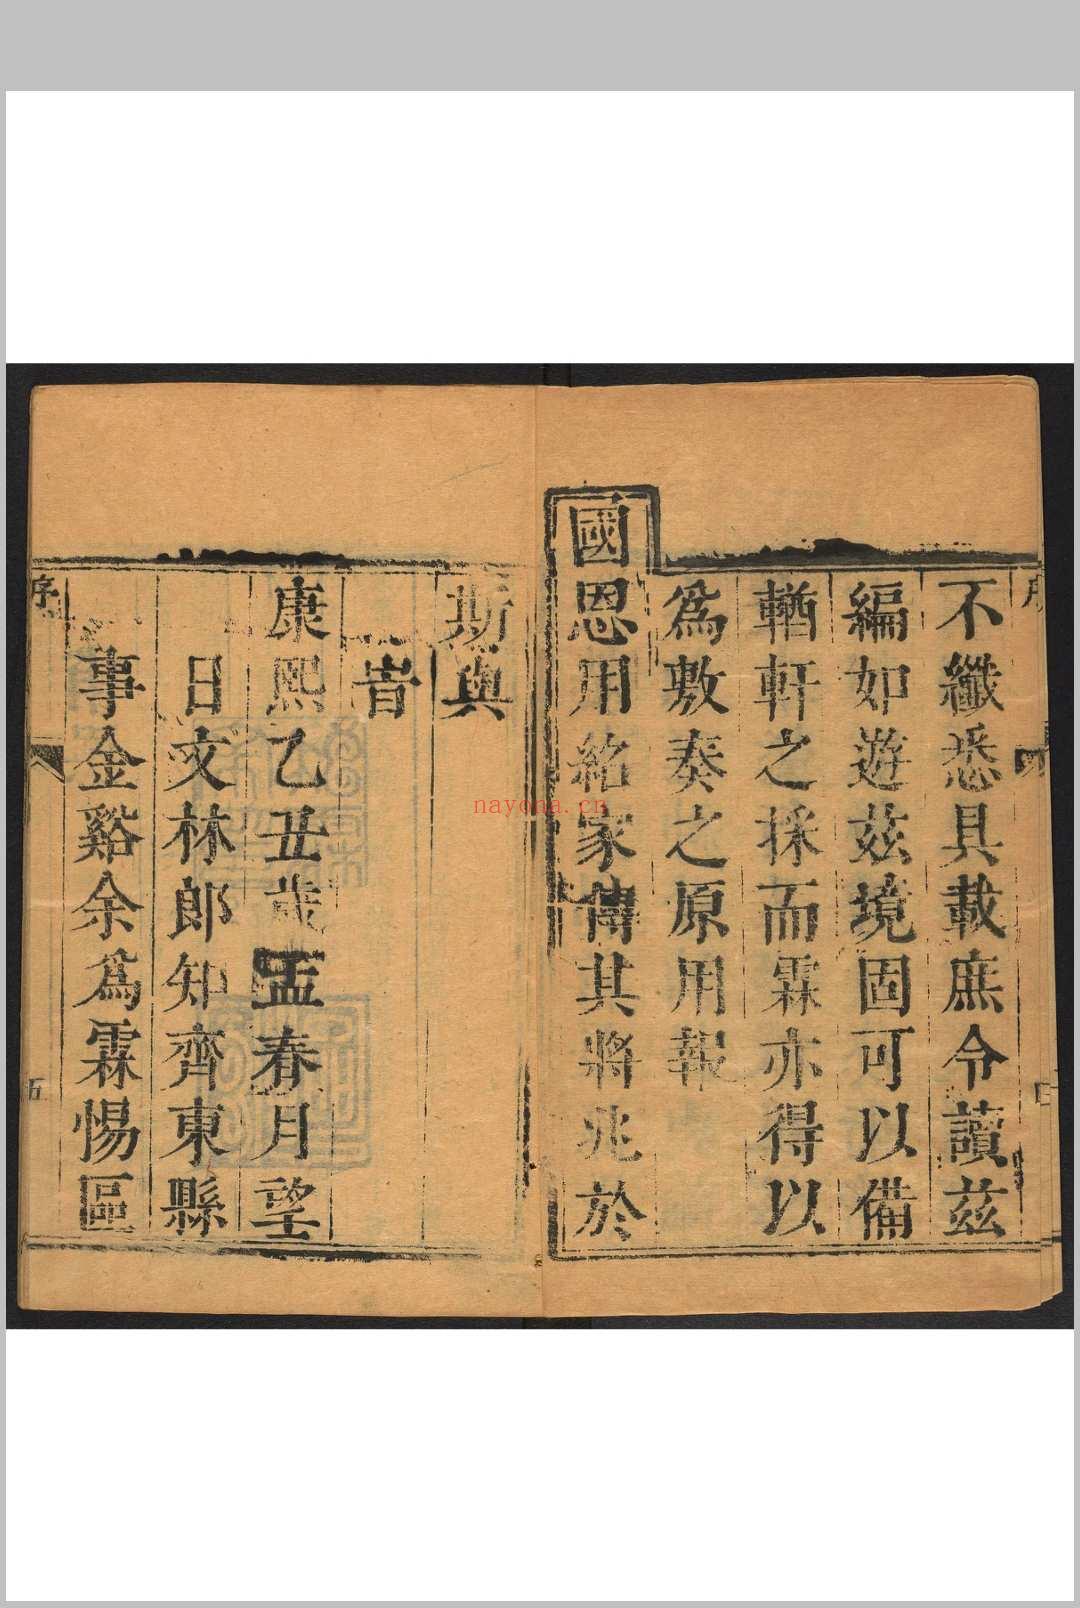 不纖悉具載庶令讀茲
編如遊茲境固可以備
輶軒之採而霖亦得以
爲敷奏之原用報
國恩用紹家傳其將兆於
斯與
旹
康熙乙丑歲孟春月望
日文林郎知齊東縣
事金谿余爲霖惕區
序
五
nayona.cn